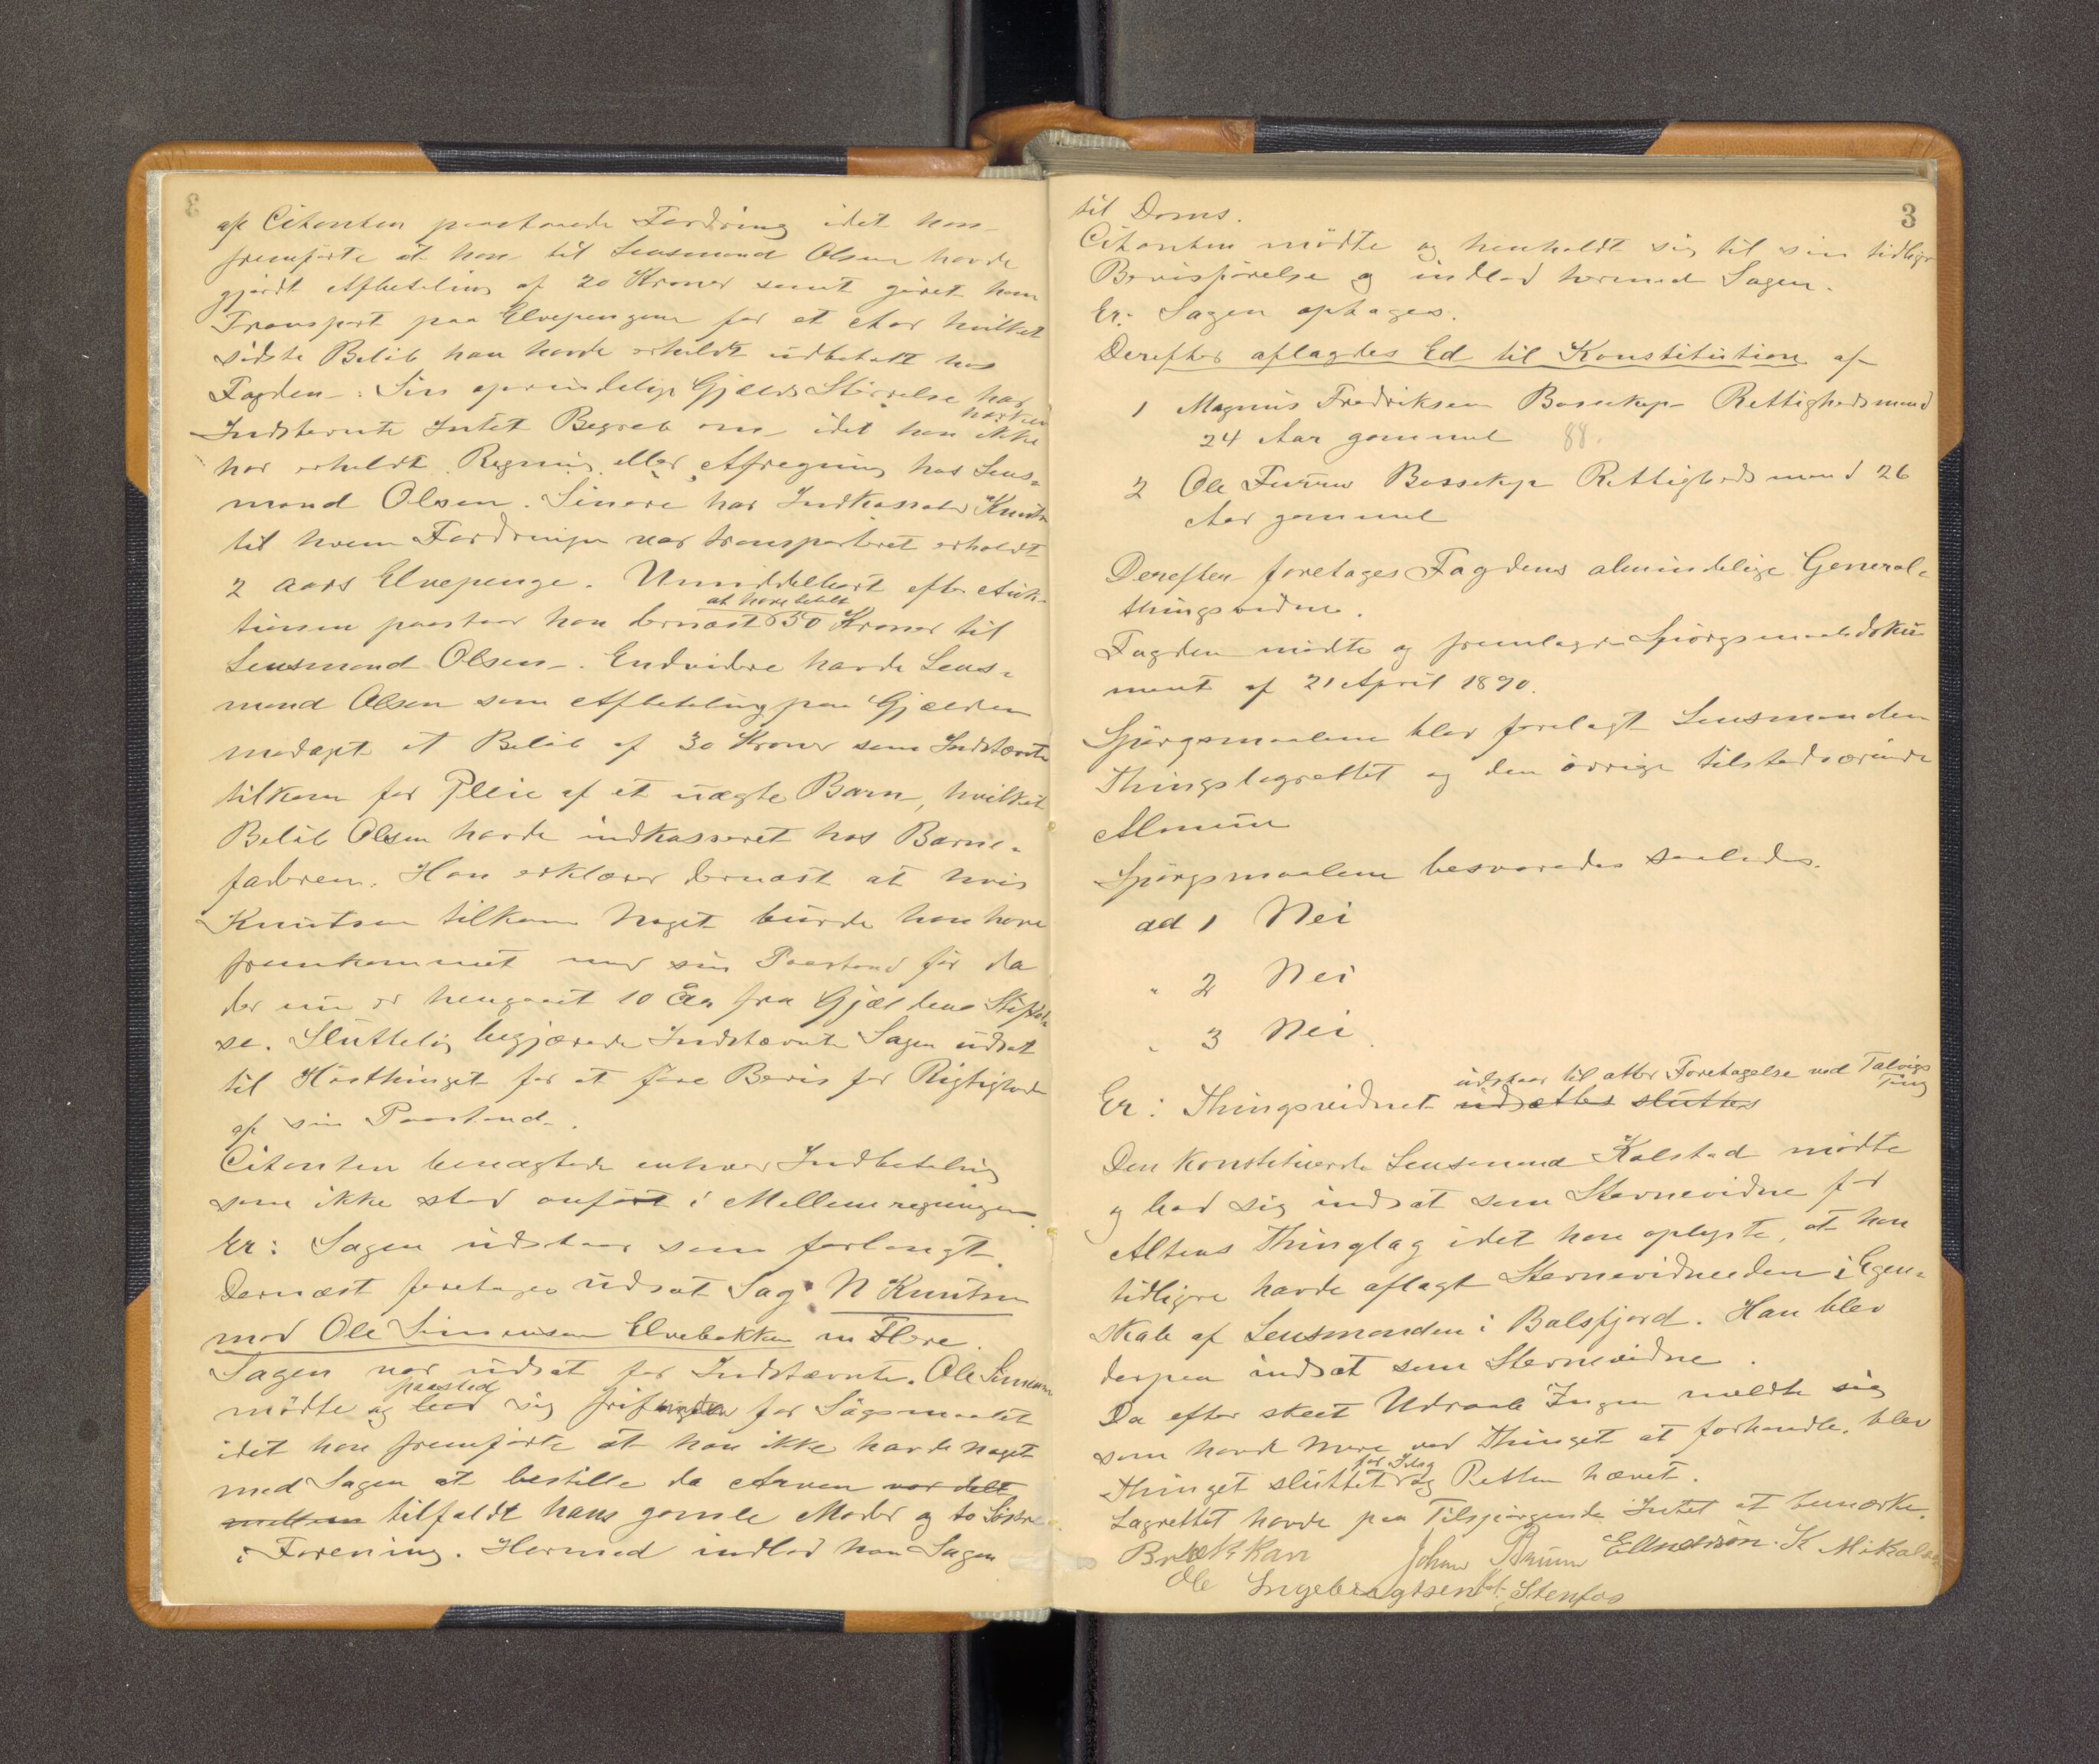 af Citanten paastaaede Fordring idet han
fremførte at han til Lensmand Olsen havde
gjordt Afbetaling af 20 Kroner samt givet ham
Transport paa Elvepengene for et Aar hvilket
sidste Beløb han havde erholdt udbetalt hos
Fogden. Sin oprindelige Gjælds Størrelse har
Indstevnte Intet Begreb om idet han ikke
hverken
har erholdt Regning eller Afregning hos Lens-
mand Olsen. Senere har Indkassator Knuts
til hvem Fordringen var transporteret erholdt
2 Aars Elvepenge. Umiddelbart efter Auk-
at have betalt
tionen paastaar han dernæst 50 Kroner til
Lensmand Olsen. Endvidere havde Lens-
mand Olsen som Afbetaling paa Gjælden
modtaget et Beløb af 30 Kroner som Indstævnte
tilkom for Pleie af et uægte Barn, hvilket
Beløb Olsen havde indkasseret hos Barne-
faderen. Han erklærer dernæst at hvis
Knutsen tilkom Noget burde han have
fremkommet med sin Paastand før da
der nu er hengaaet 10 Aar fra Gjældens Stiftel-
se. Sluttelig begjærede Indstævnte Sagen udsat
til Høstthinget for at faae Bevis for Rigtigheden
af sin Paastand.
Citanten benægtede enhver Indbetaling
som ikke stod anført i Mellemregningen
Er: Sagen udstaar som forlangt.
Dernæst foretages udsat Sag: N Knutsen
mod Ole Simensen Elvebakken m Flere.
Sagen var udsat for Indstævnte. Ole Simensen
paastod
mødte og bad sig frifunden for Søgsmaalet
idet han fremførte at han ikke havde noget
med Sagen at bestille da Arven var delt
mellem tilfaldt hans gamle Moder og to Søstre
i Forening. Hermed indlod han Sagen
3
til Doms.
Citanten mødte og henholdt sig til sin tidligere
Bevisførelse og indlod hermed Sagen.
Er: Sagen optages.
Derefter aflagdes Ed til Konstitution af
1 Magnus Fredriksen Bossekop Rettighedsmand
24 Aar gammel 88.
2 Ole Bossekop Rettighedsmand 26
Aar gammel
Derefter foretages Fogdens almindelige General-
thingsvidne.
Fogden mødte og fremlagde Spørgsmaalsdoku
ment af 21 April 1890.
Spørgsmaalene blev forelagt Lensmanden
Thingslagrettet og den øvrige tilstedeværende
Almue
Spørgsmaalene besvaredes saaledes.
ad 1 Nei
" 2 Nei
" 3 Nei
udstaar til atter Foretagelse ved Talvigs
Ting
Er: Thingsvidnet udsættes sluttes
Den konstituerede Lensmand Kolstad mødte
og bad sig indsat som Stevnevidne for
Altens Thinglag idet han oplyste, at han
tidligere havde aflagt Stevnevidneeden i Egen-
skab af Lensmanden i Balsfjord. Han blev
derpaa indsat som Stevnevidne.
Da efter skeet Udraab Ingen meldte sig
som havde mere ved Thinget at forhandle, blev
for Idag
Thinget sluttet og Retten hævet.
Lagrettet havde paa Tilspørgende Intet at bemærke.
Johan EAnderson. K Mikalsen
Ole Ingebrigtsen Stenfos